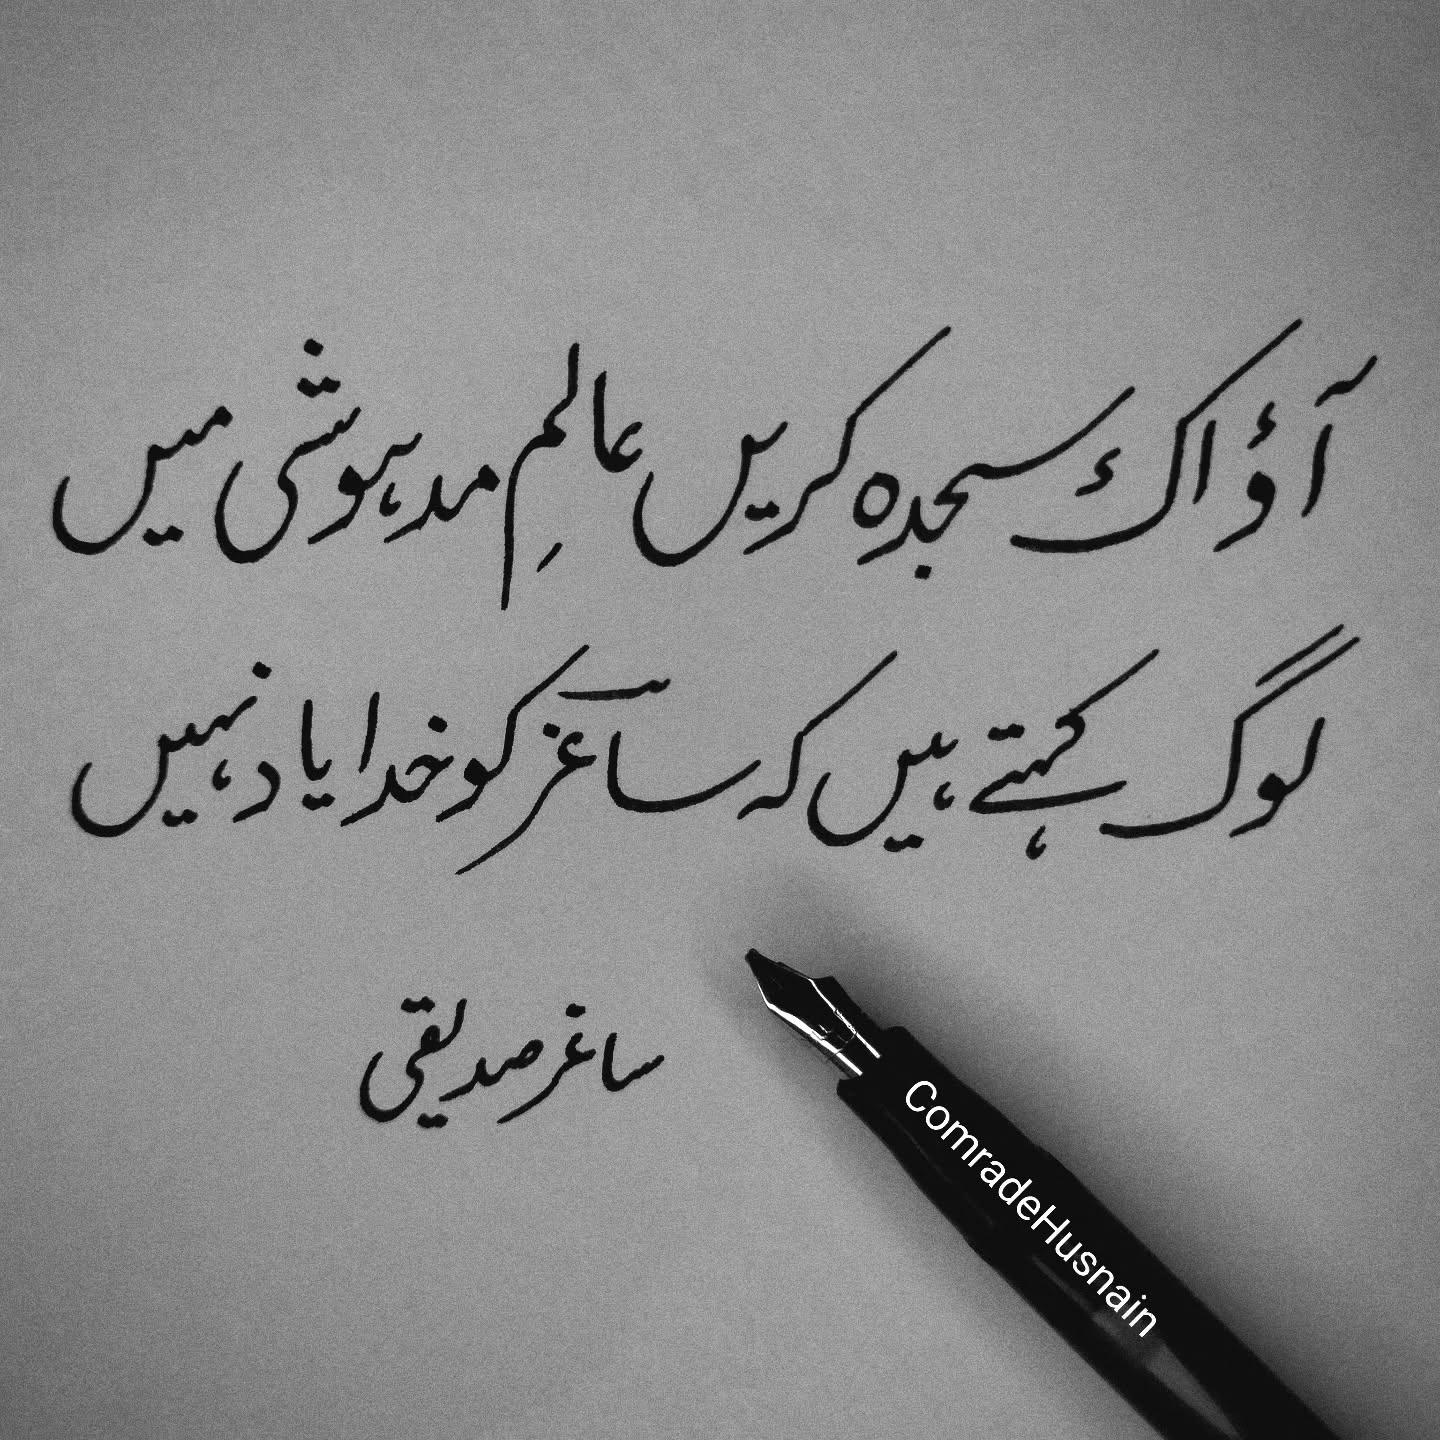 آؤ اک سجدہ کریں عالمِ مدہوشی میں
لوگ کہتے ہیں کہ ساغرؔ کو خدا یاد نہیں
ساغر صدیقی
ComradeHusnain